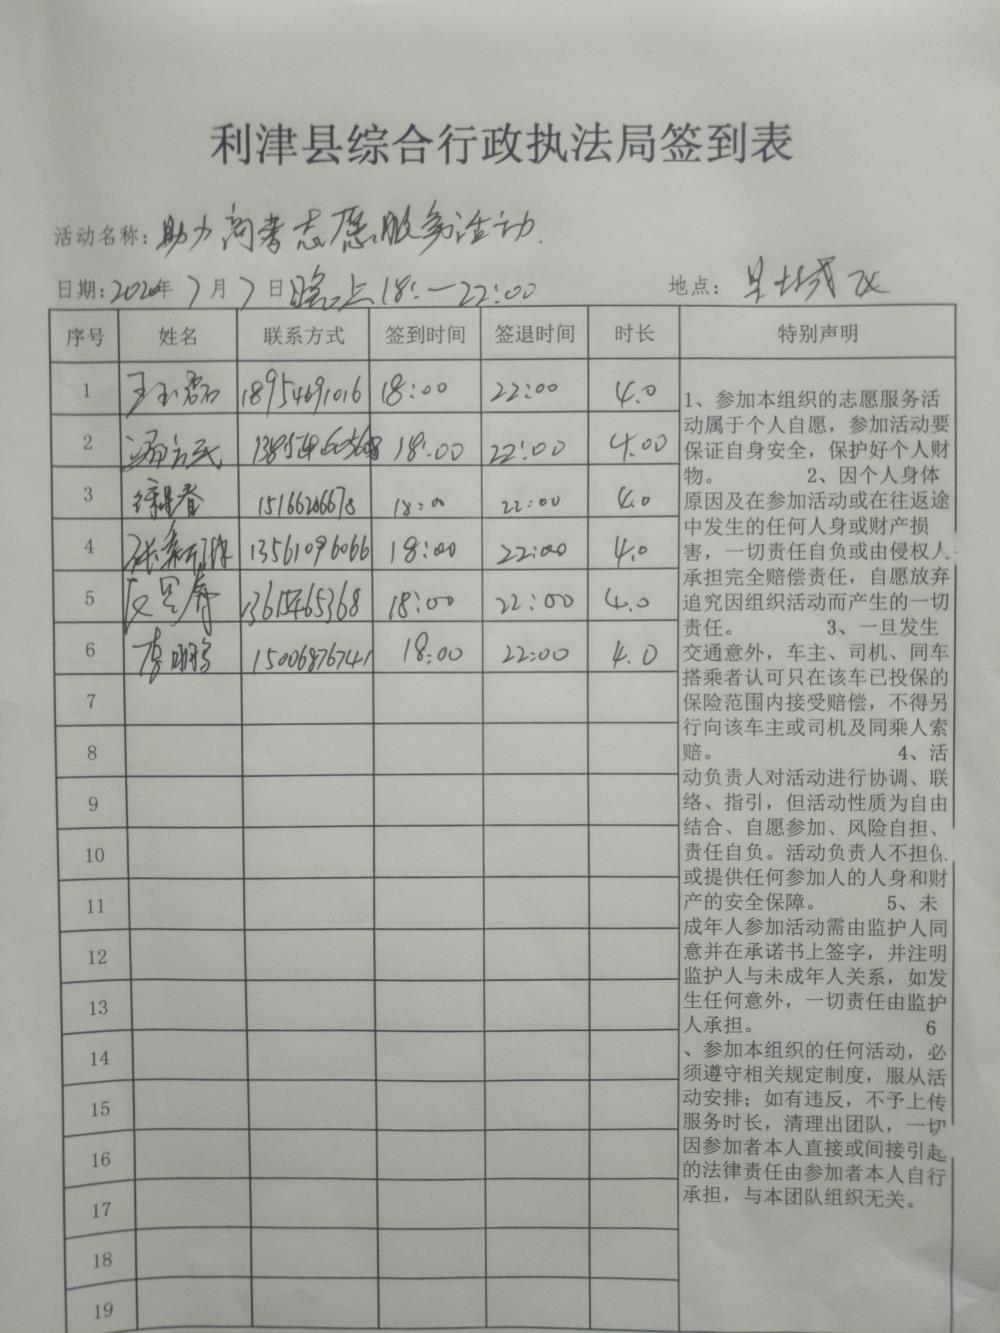 利津县综合行政执法局签到表
活动名称：助力高考志愿服务活动.
日期：2020年7月7日晚上18:—22:00 地点：县城区
序号 姓名 联系方式 签到时间 签退时间 时长 特别声明
1 王玉磊 18954691016 18:00 22:00 4.0
2 18:00 22:00 4.00
3 15166206678 18:00 22:00 4.0
4 13561096066 18:00 22:00 4.0
5 13615465368 18:00 22:00 4.0
6 李明鹏 15006876741 18:00 22:00 4.0
7
8
9
10
11
12
13
14
15
16
17
18
19
1、参加本组织的志愿服务活
动属于个人自愿，参加活动要
保证自身安全，保护好个人财
物。 2、因个人身体
原因及在参加活动或在往返途
中发生的任何人身或财产损
害，一切责任自负或由侵权人
承担完全赔偿责任，自愿放弃
追究因组织活动而产生的一切
责任。 3、一旦发生
交通意外，车主、司机、同车
搭乘者认可只在该车已投保的
保险范围内接受赔偿，不得另
行向该车主或司机及同乘人索
赔。 4、活
动负责人对活动进行协调、联
络、指引，但活动性质为自由
结合、自愿参加、风险自担、
责任自负。活动负责人不担保
或提供任何参加人的人身和财
产的安全保障。 5、未
成年人参加活动需由监护人同
意并在承诺书上签字，并注明
监护人与未成年人关系，如发
生任何意外，一切责任由监护
人承担。 6
、参加本组织的任何活动，必
须遵守相关规定制度，服从活
动安排；如有违反，不予上传
服务时长，清理出团队，一切
因参加者本人直接或间接引起
的法律责任由参加者本人自行
承担，与本团队组织无关。